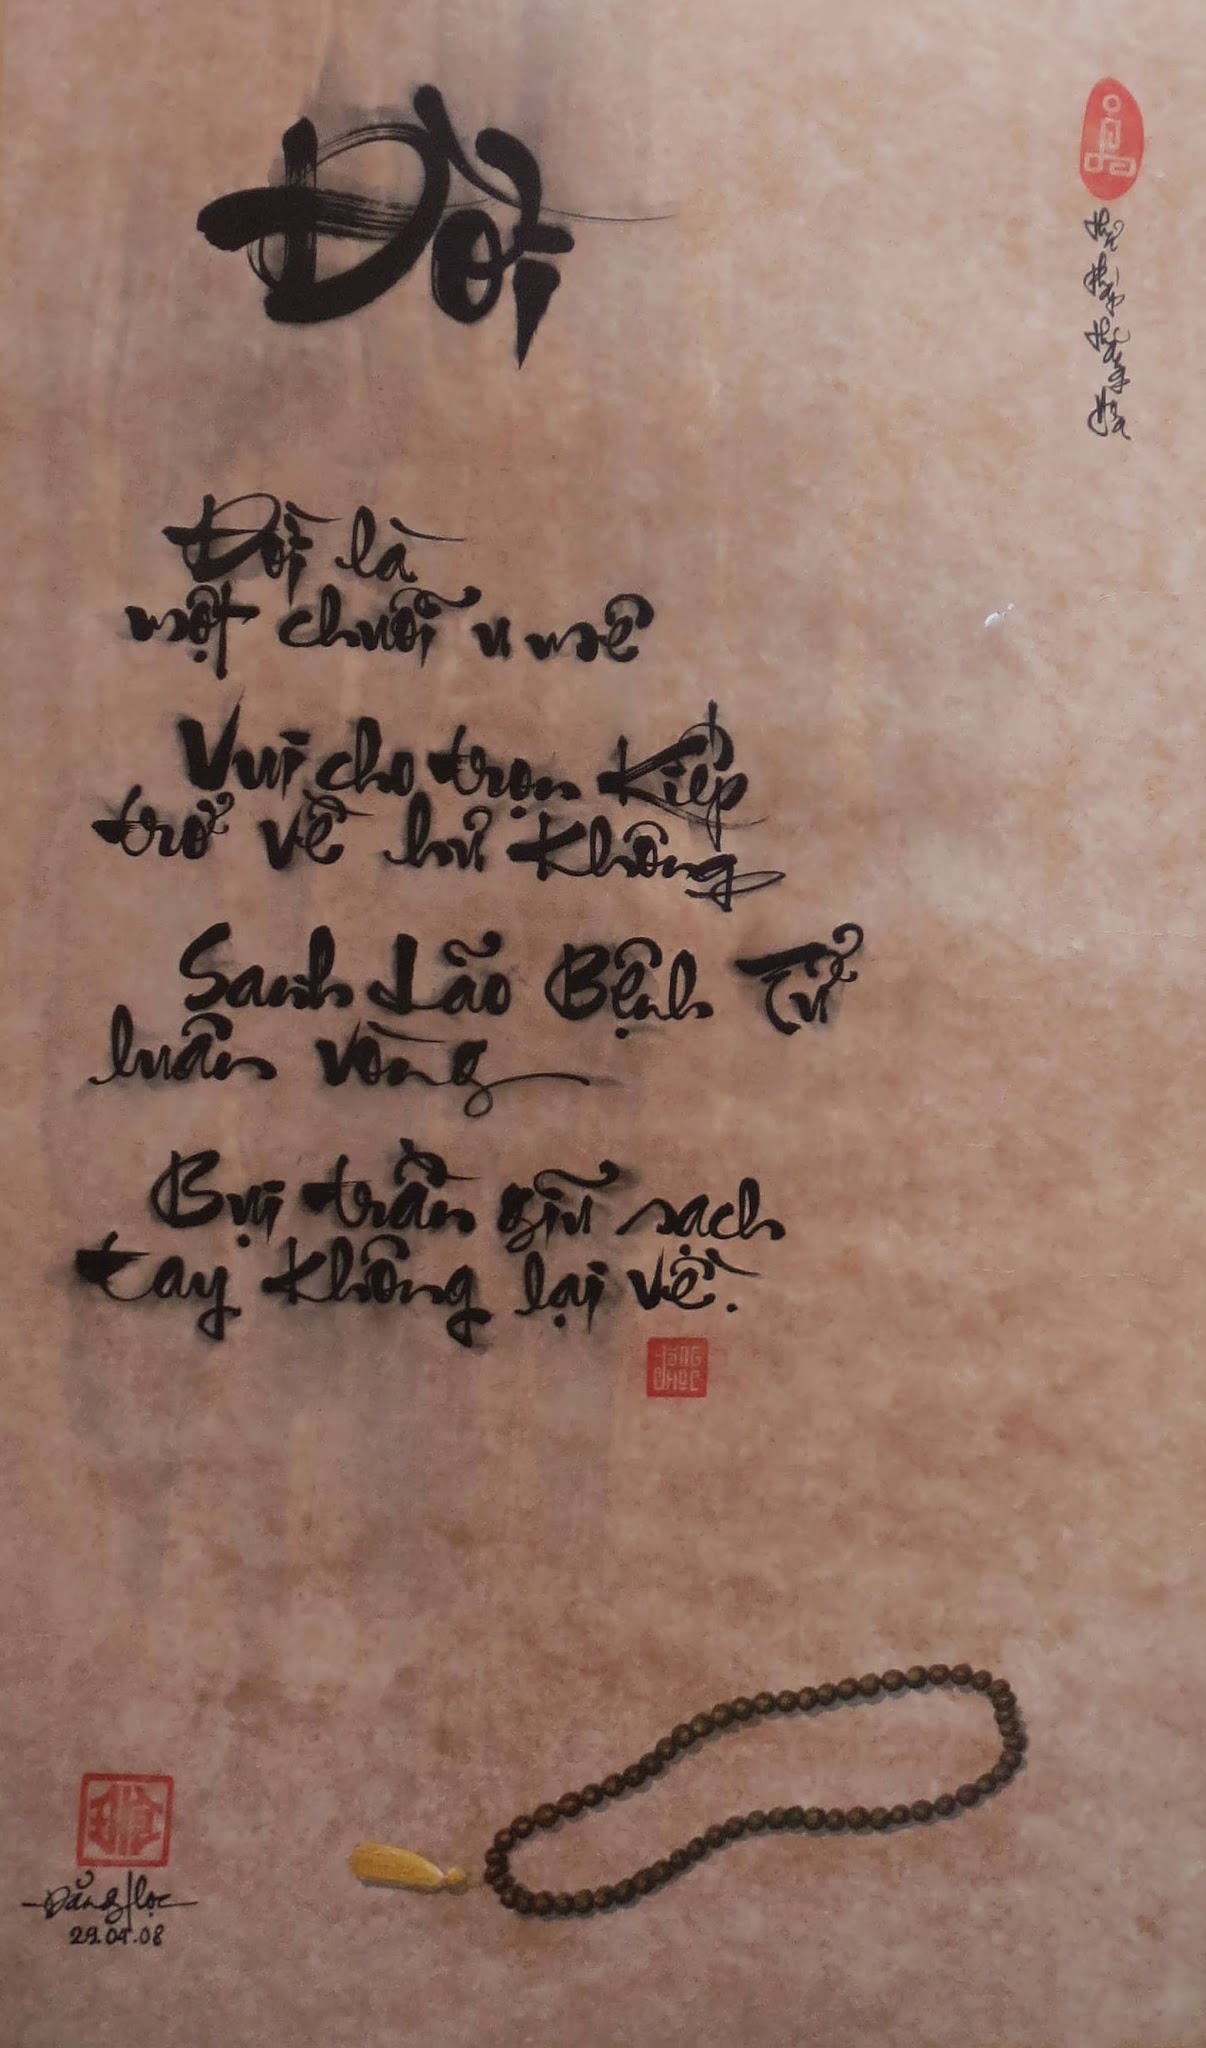 Đời
Đời là
một chuỗi u mê
Vui cho trọn Kiếp
trở về hư Không
Sanh Lão Bệnh Tử
luân vòng
Bụi trần giữ sạch
tay Không lại về.
Đăng Học
29.04.08